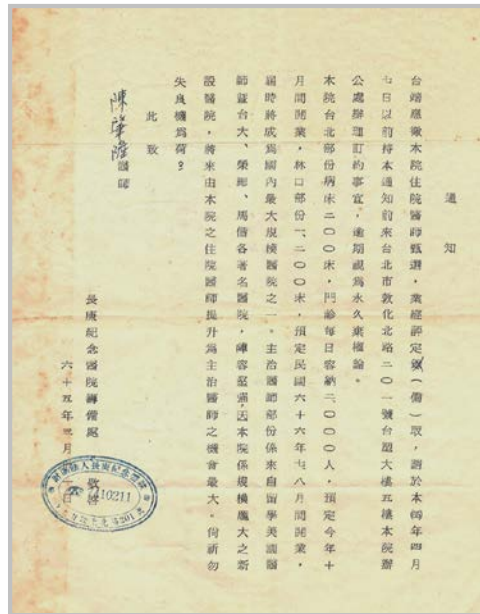 通知
台端應徵本院住院醫師甄選，業經評定錄（備）取，請於本66年四月
七日以前持本通知前來台北市敦化北路二〇一號台塑大樓五樓本院辦
公處辦理訂約事宜，逾期視為永久棄權論。
本院台北部份病床二〇〇床，門診每日容納二、〇〇〇人，預定今年十
月間開業，林口部份一、二〇〇床，預定民國六十六年七八月間開業，
屆時將成為國內最大規模醫院之一。主治醫師部份係來自留學美國醫
師暨台大、榮總、馬偕各著名醫院，陣容堅強，因本院係規模龐大之新
設醫院，將來由本院之住院醫師提升為主治醫師之機會最大。尚祈勿
失良機為荷？
此致
陳肇隆醫師
長庚紀念醫院籌備處 敬啓
六十五年三月 日
財團法人長庚紀念醫院
10211
台北市敦化北路201號